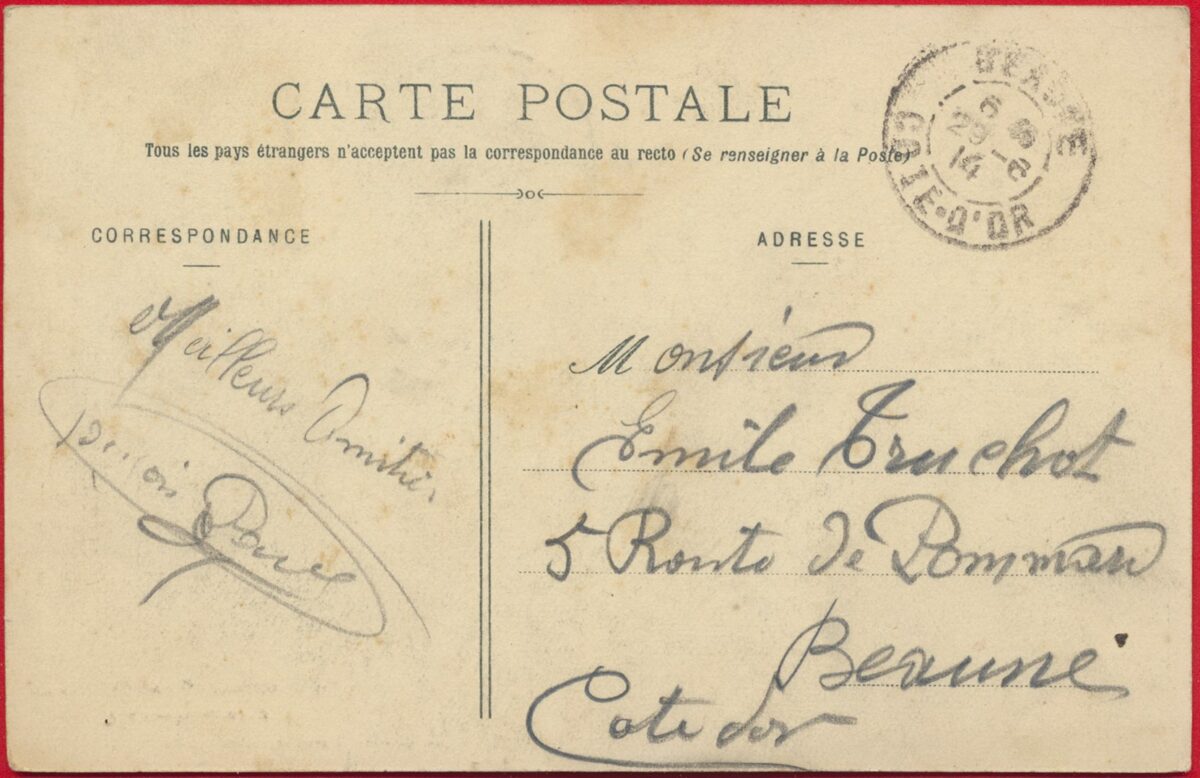 CARTE POSTALE
Tous les pays étrangers n'acceptent pas la correspondance au recto (Se renseigner à la Poste)
BEAUNE
CÔTE-D'OR
6
29-6
14
CORRESPONDANCE
Meilleurs Amitiés
ADRESSE
Monsieur
Emile Truchot
5 Route de Pommard
Beaune
Cote d'or